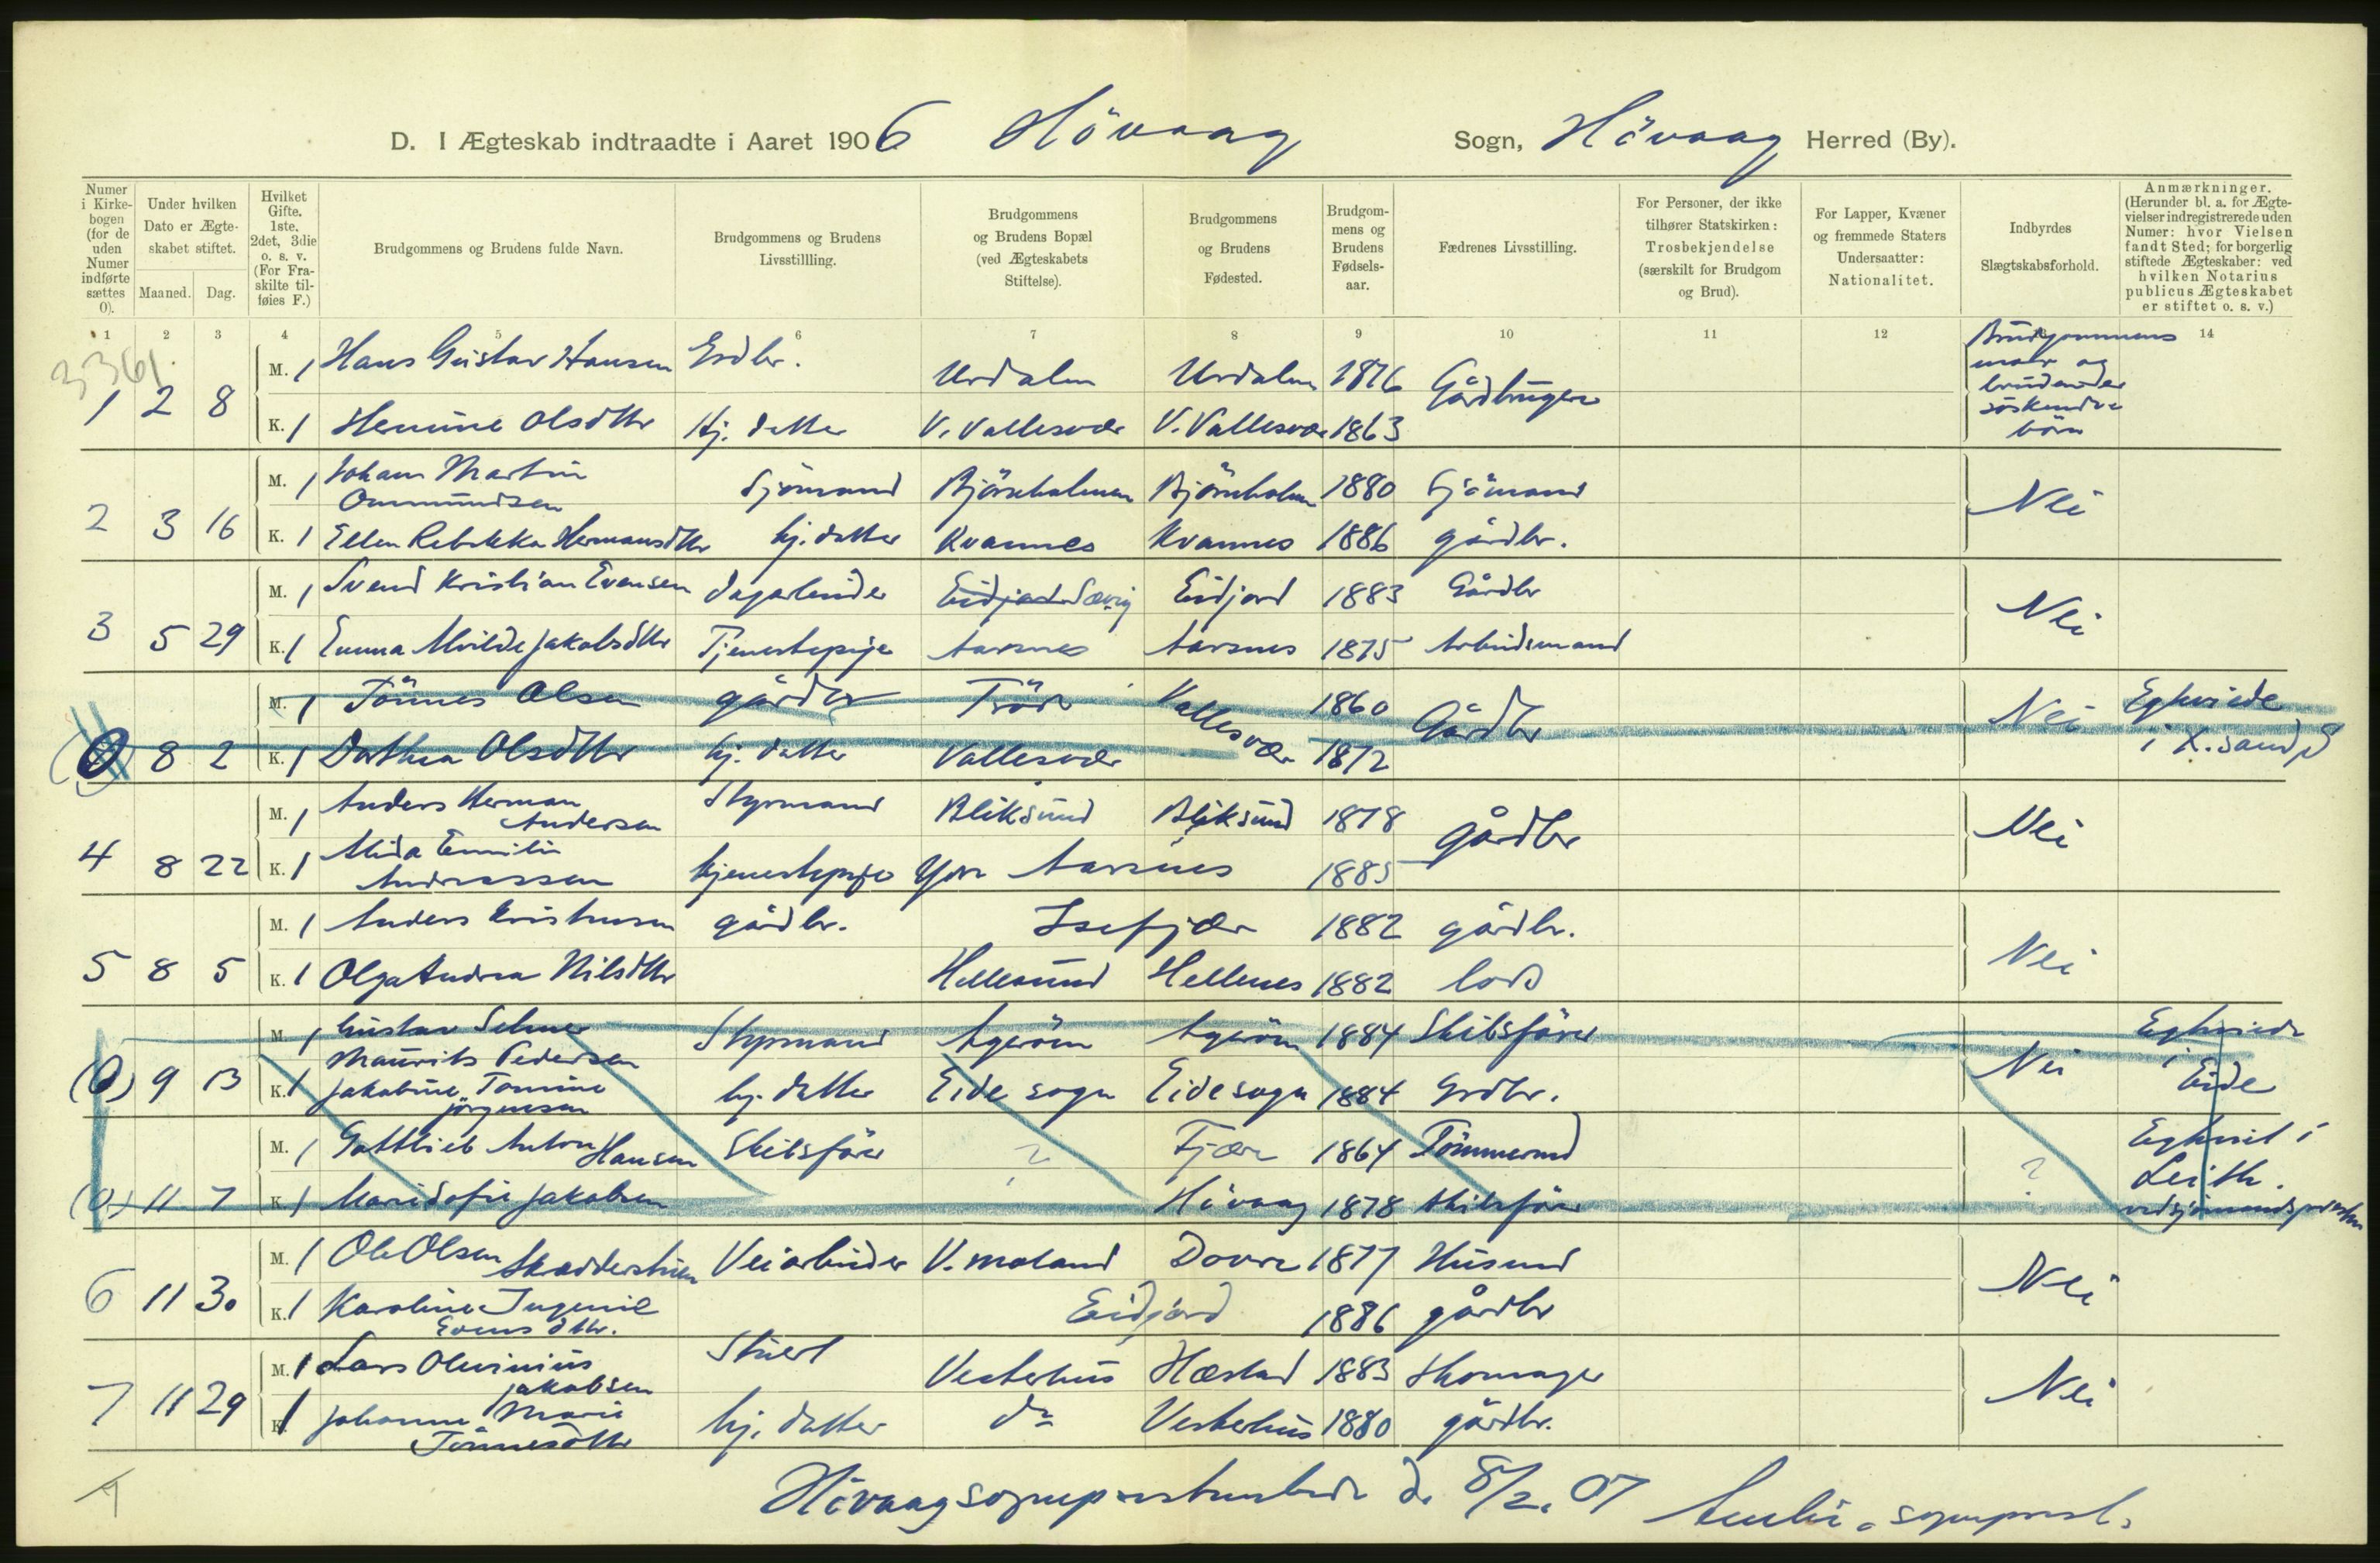 D. I Ægteskab indtraadte i Aaret 1906 Hövaag Sogn, Hövaag Herred (By).
Numer i Kirke-bogen (for de uden Numer indførte sættes 0).
Under hvilken Dato er Ægte-skabet stiftet.
Maaned. Dag.
Hvilket Gifte. 1ste. 2det, 3die o. s. v. (For Fra-skilte til-føies F.)
Brudgommens og Brudens fulde Navn.
Brudgommens og Brudens Livsstillling.
Brudgommens og Brudens Bopæl (ved Ægteskabets Stiftelse).
Brudgommens og Brudens Fødested.
Brudgom-mens og Brudens Fødsels-aar.
Fædrenes Livsstilling.
For Personer, der ikke tilhører Statskirken: Trosbekjendelse (særskilt for Brudgom og Brud).
For Lapper, Kvæner og fremmede Staters Undersaatter: Nationalitet.
Indbyrdes Slægtskabsforhold.
Anmærkninger. (Herunder bl. a. for Ægte-vielser indregistrerede uden Numer: hvor Vielsen fandt Sted; for borgerlig stiftede Ægteskaber: ved hvilken Notarius publicus Ægteskabet er stiftet o. s. v.)
1 2 3 4 5 6 7 8 9 10 11 12 13 14
3361.
1 2 8 M. 1 Hans Gustav Hansen Grdbr. Urdalen Urdalen 1876 Gårdbrugere Brudgommens mor og brudens er söskendebörn
K. 1 Hemine Olsdttr Hj. datter V. Vallesvær V. Vallesvær 1863
2 3 16 M. 1 Johan Martin Ommundsen Sjömand Björnholmen Björnholmen 1880 Sjömand Nei
K. 1 Ellen Rebekka Hermansdttr hj. datter Kvannes Kvannes 1886 gårdbr.
3 5 29 M. 1 Svend Kristian Evensen dagarbeider Eidjord Sævig Eidjord 1883 Gårdbr Nei
K. 1 Emma Alvilde Jakobsdttr Tjenestepige Aarsnes Aarsnes 1875 Arbeidsmand
0 8 2 M. 1 Tönnes Olsen gårdbr Tröe Vallesvær 1860 Gårdbr Nei Egteviede i K.sand S
K. 1 Dorthea Olsdttr hj. datter Vallesvær 1872
4 8 22 M. 1 Anders Herman Andersen Styrmand Bliksund Bliksund 1878 gårdbr Nei
K. 1 Alida Emilie Andreassen tjenestepige Ydre Aarsnes 1885
5 8 5 M. 1 Anders Kristensen gårdbr. Isefjær 1882 gårdbr. Nei
K. 1 Olga Andrea Nilsdttr Hellesund Hellenes 1882 lods
(0) 9 13 M. 1 Gustav Selmer Maurits Pedersen Styrmand Ageröen Ageröen 1884 Skibsförer Nei Egteviede i Eide
K. 1 Jakobine Tomine Jörgensen hj. datter Eide sogn Eide sogn 1884 Grdbr.
(0) 11 7 M. 1 Gottlieb Anton Hansen Skibsförer ? Fjære 1864 Tömmermd ? Egteviet i Leith. ved sjömandspresten
K. 1 Marie Sofie Jakobsen Hövaag 1878 skibsförer
6 11 30 M. 1 Ole Olsen Veiarbeider V. Moland Dovre 1877 Husmd Nei
K. 1 Karoline Ingemie Evensdttr. Eidjord 1886 gårdbr
7 11 29 M. 1 Lars Oluvinius Jakobsen Stuert Vesterhus Hæstad 1883 Skomager Nei
K. 1 Johanne Marie Tönnesdttr hj. datter do Vesterhus 1880 gårdbr.
Hövaag sogneprestembede d. 8/2. 07 sogneprest.